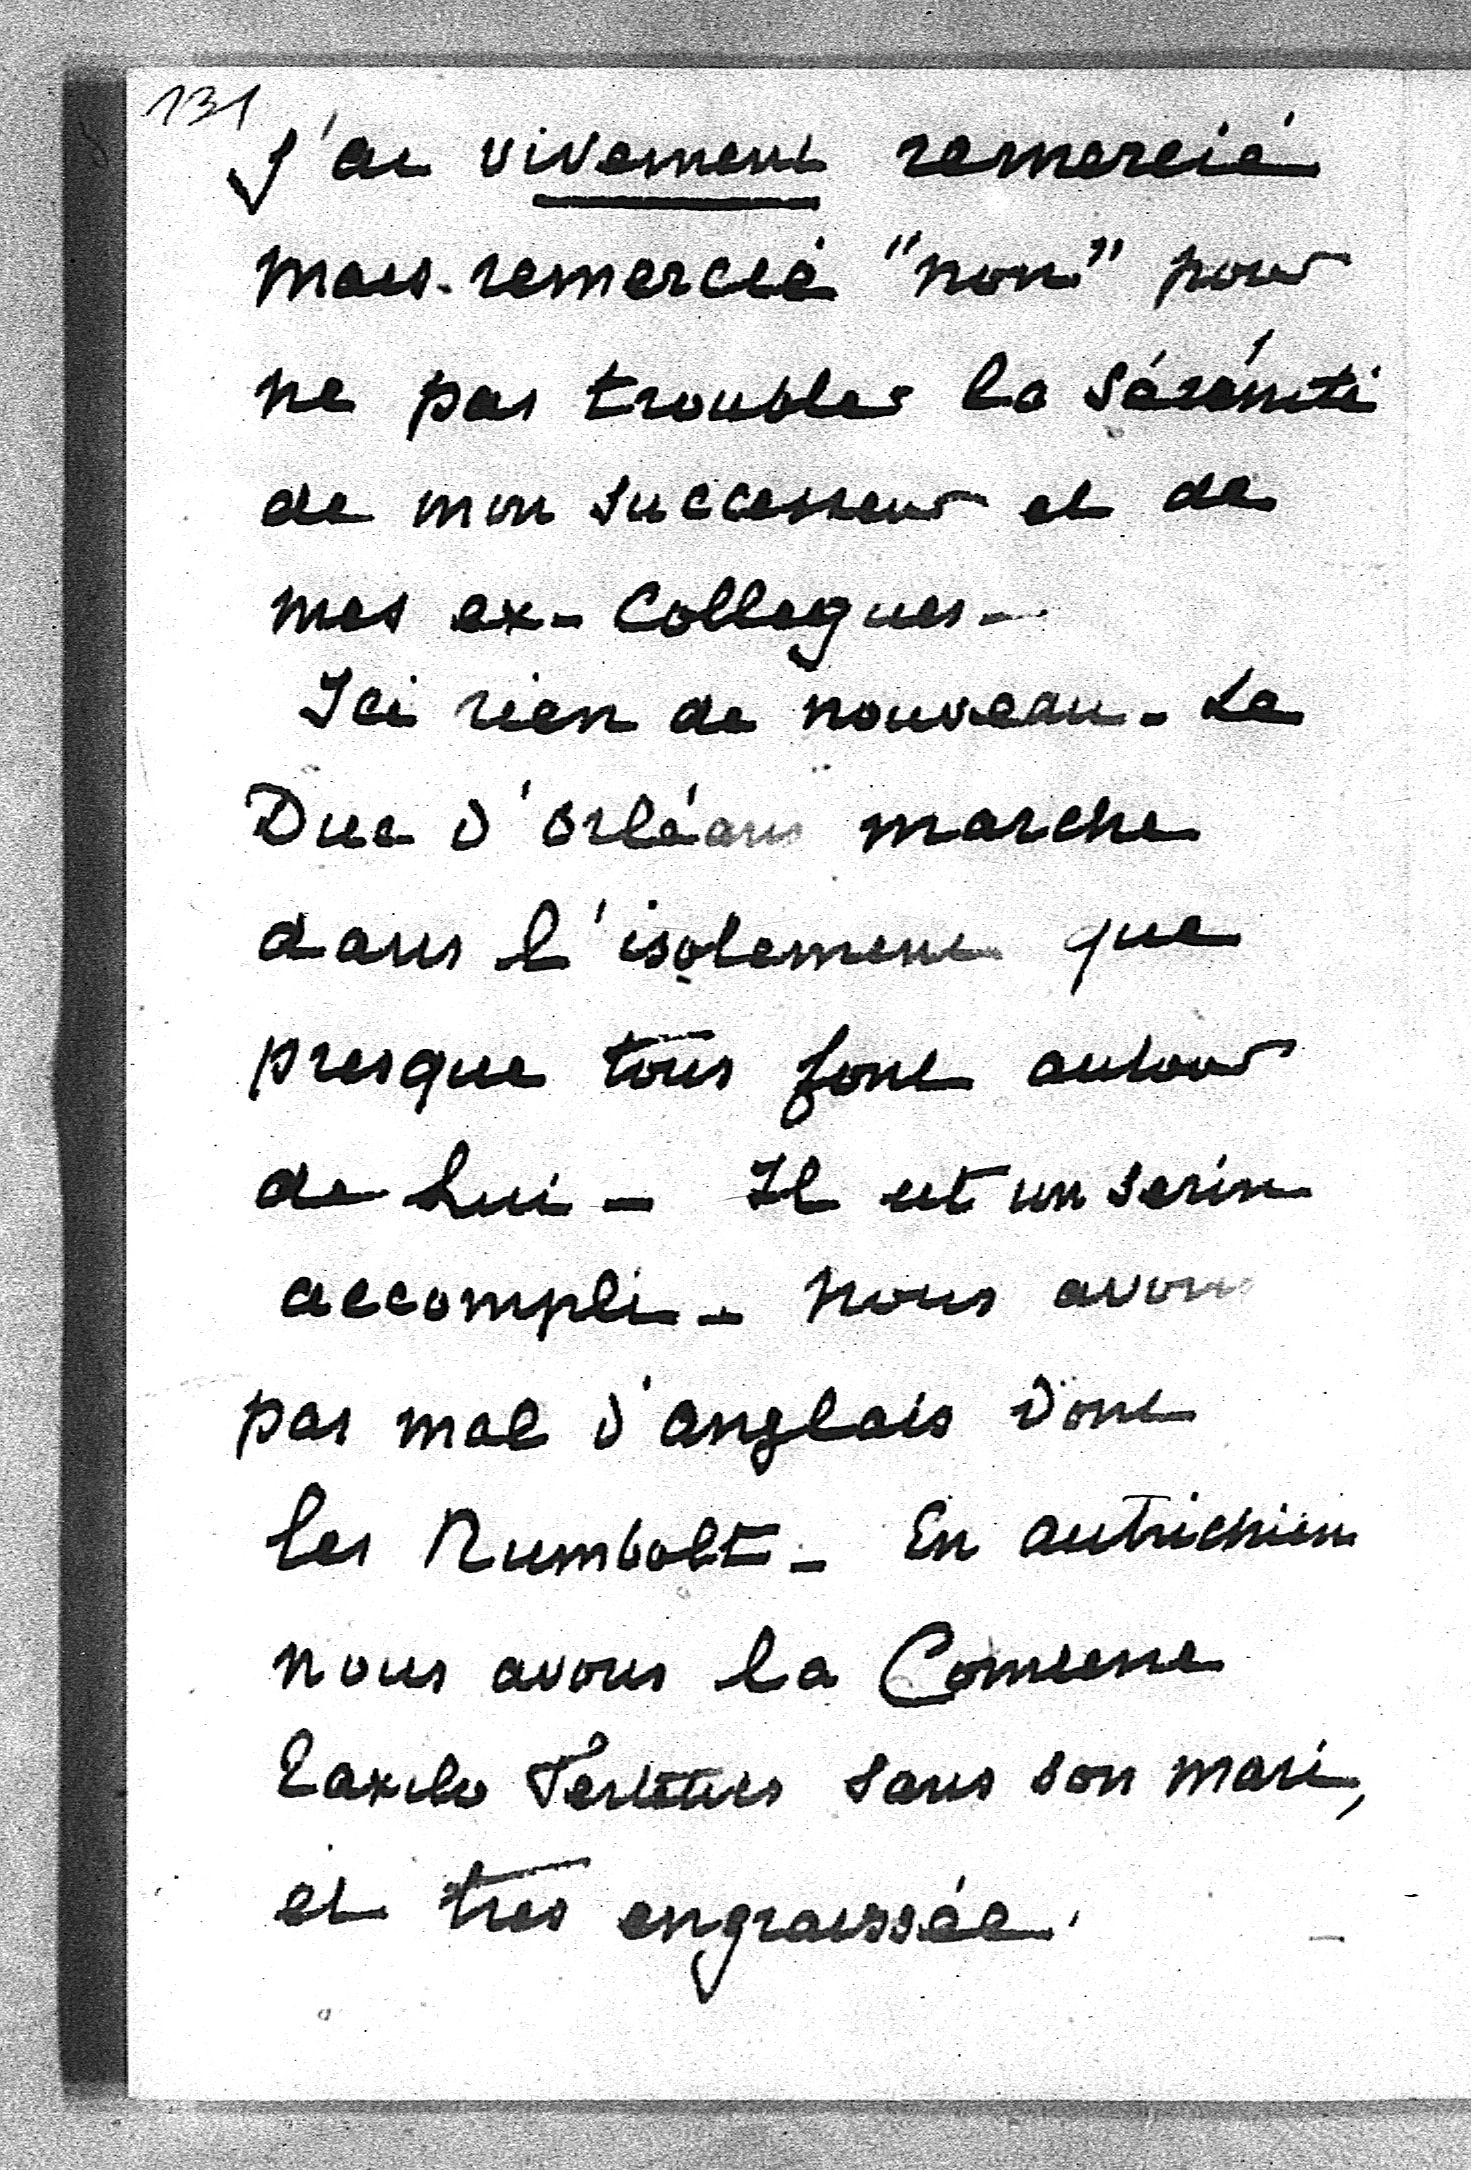 131
J'ai vivement remercié
mais remercié "non" pour
ne pas troubler la sérénité
de mon successeur et de
mes ex-Collegues -
Ici rien de nouveau - Le
Duc d'Orléans marche
dans l'isolement que
presque tous font autour
de Lui - Il est un serin
accompli - Nous avons
pas mal d'anglais dont
les Rumbolt - En autrichiens
nous avons la Comtesse
Festetics sans son mari,
et très engraissée.